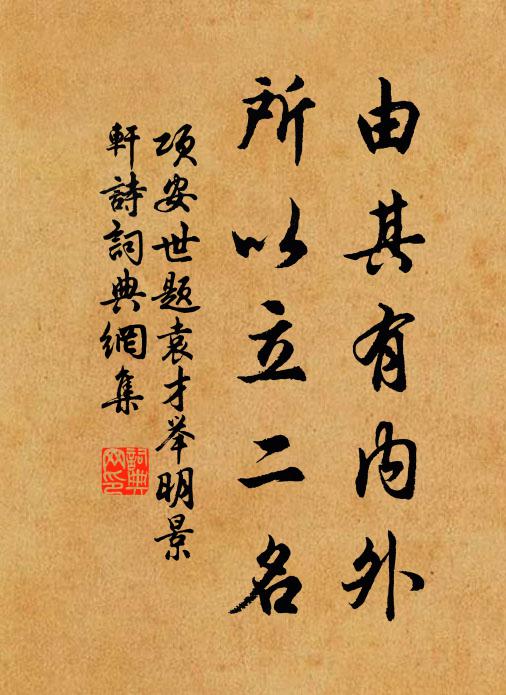 由其有内外
所以立二名
项安世题袁才举明景
軒詩詞典網集
詞典
网印